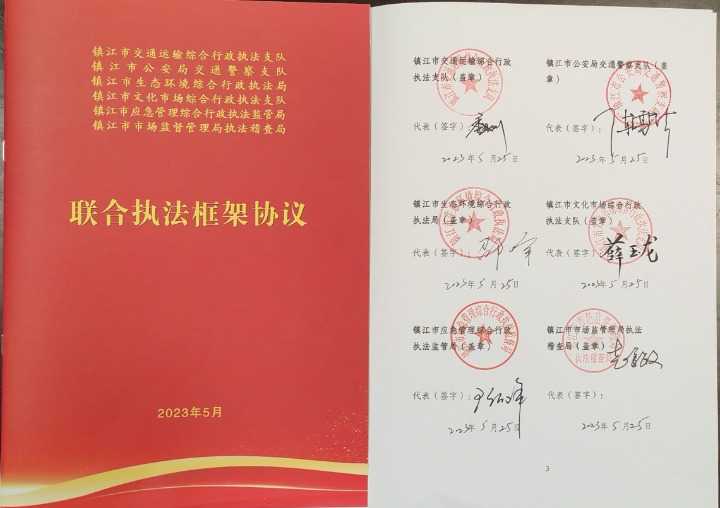 镇江市交通运输综合行政执法支队
镇江市公安局交通警察支队
镇江市生态环境综合行政执法局
镇江市文化市场综合行政执法支队
镇江市应急管理综合行政执法监管局
镇江市市场监督管理局执法稽查局
联合执法框架协议
2023年5月
镇江市交通运输综合行政
执法支队（盖章）
代表（签字）：
2023年5月25日
镇江市公安局交通警察支队（盖
章）
代表（签字）：
2023年5月25日
镇江市生态环境综合行政
执法局（盖章）
代表（签字）：
2023年5月25日
镇江市文化市场综合行政
执法支队（盖章）
代表（签字）：薛玉龙
2023年5月25日
镇江市应急管理综合行政
执法监管局（盖章）
代表（签字）：
2023年5月25日
镇江市市场监管局执法
稽查局（盖章）
代表（签字）：
2023年5月25日
3